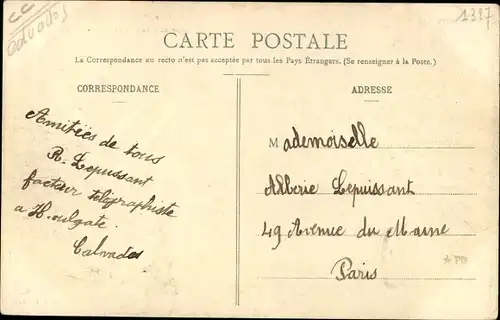 CC
Calvados
1327
CARTE POSTALE
La Correspondance au recto n'est pas acceptée par tous les Pays Étrangers. (Se renseigner à la Poste.)
CORRESPONDANCE
Amitiées de tous
R. Lepuissant
facteur télégraphiste
a Houlgate.
Calvados
ADRESSE
Mademoiselle
Alberie Lepuissant
49 Avenue du Maine
Paris
* PB